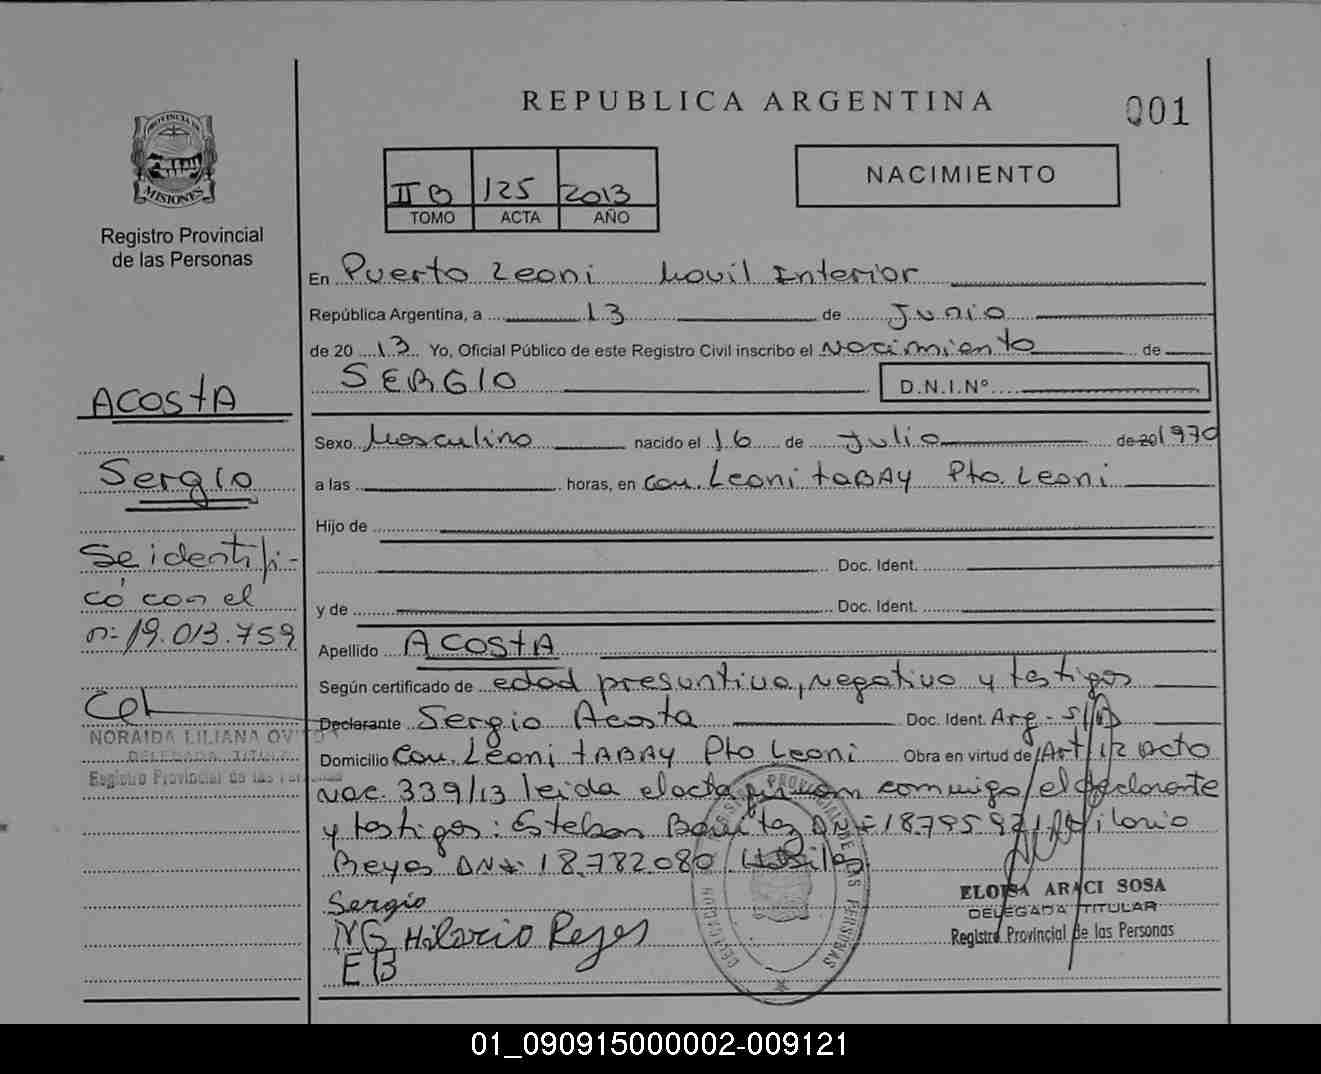 REPUBLICA ARGENTINA
001
PROVINCIA DE
MISIONES
Registro Provincial
de las Personas
II B 125 2013
TOMO ACTA AÑO
NACIMIENTO
En Puerto Leoni Movil Interior
República Argentina, a 13 de Junio
de 20 13 Yo, Oficial Público de este Registro Civil inscribo el Nacimiento de
SERGIO D.N.I.Nº
Sexo Masculino nacido el 16 de Julio de 20 1970
a las horas, en Com. Leoni tABAY Pto. Leoni
Hijo de
Doc. Ident.
y de Doc. Ident.
Apellido ACOStA
Según certificado de edad presuntiva, negativo y testigos
Declarante Sergio Acosta Doc. Ident. Arg - S/D
Domicilio Com. Leoni tABAY Pto Leoni Obra en virtud de Art 1/2 acto
nac. 339/13 leida el acta firman conmigo el declarante
y testigos: Esteban Benitez DNI 18.795.921 Hilario
Reyes DNI 18.782.080
Sergio
NG Hilario Reyes
EB
ELOISA ARACI SOSA
DELEGADA TITULAR
Registro Provincial de las Personas
ACOStA
Sergio
Se identifi-
có con el
n: 19.013.759
NORAIDA LILIANA
DELEGADA TITULAR
Registro Provincial de las Personas
01_090915000002-009121